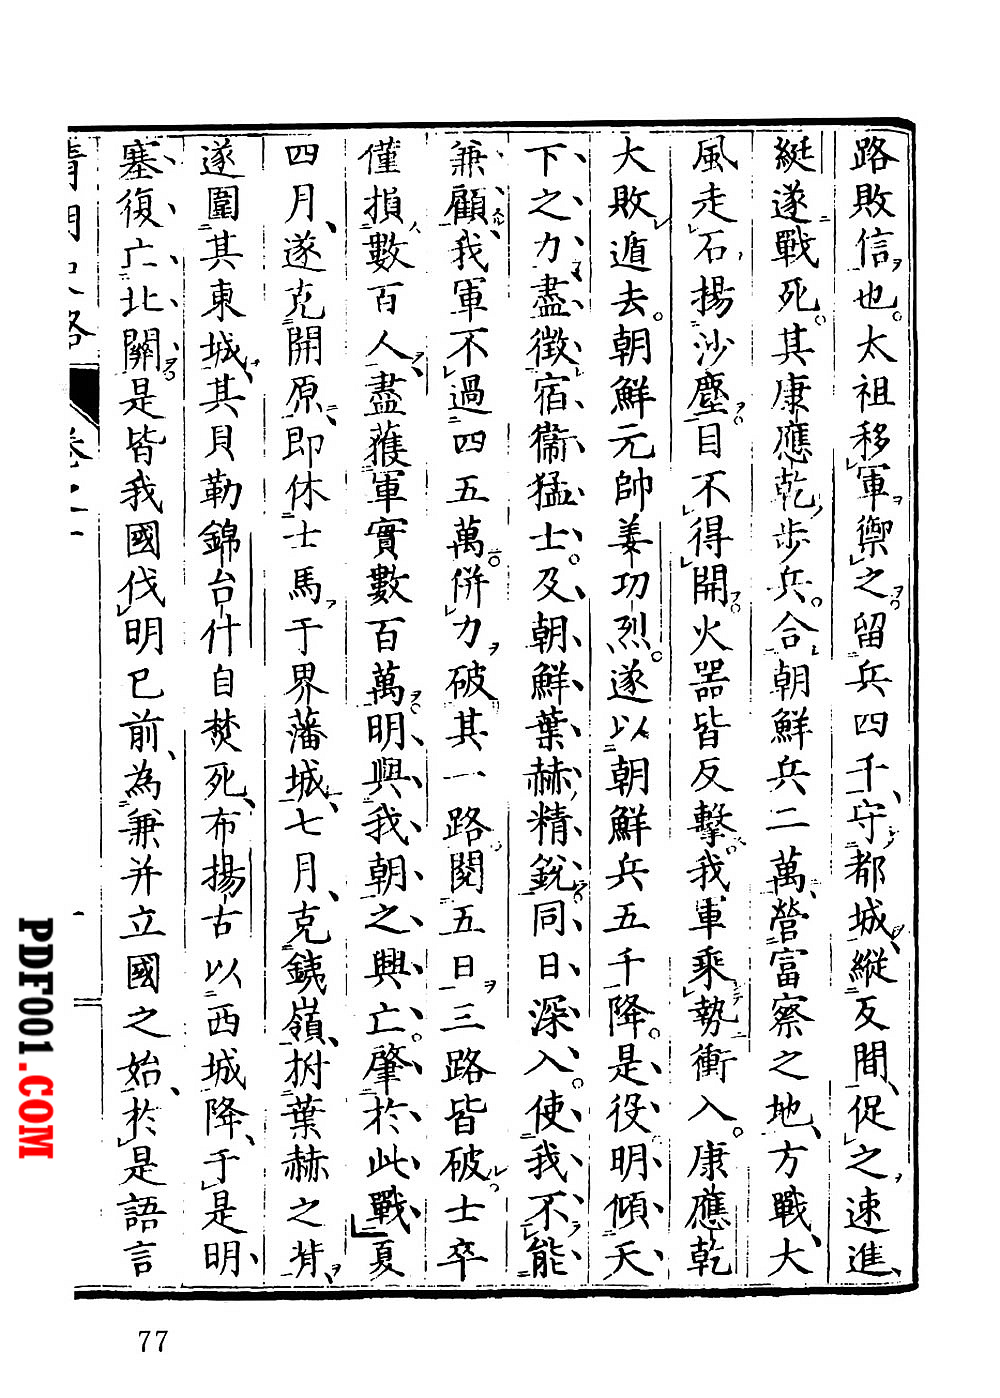 路敗信也。太祖移軍禦之。留兵四千、守都城、縱反間、促之速進、
綎遂戰死。其康應乾步兵。合朝鮮兵二萬、營富察之地、方戰、大
風走石揚沙塵。目不得開。火器皆反擊。我軍乘勢衝入。康應乾
大敗遁去。朝鮮元帥姜功烈。遂以朝鮮兵五千降。是役、明傾天
下之力、盡徵宿衞猛士。及朝鮮、葉赫、精銳。同日深入。使我不能
兼顧、我軍不過四五萬。併力破其一路。閱五日三路皆破。士卒
僅損數百人、盡獲軍實數百萬。明與我朝之興亡。肇於此戰、夏
四月、遂克開原、即休士馬于界藩城、七月、克鐵嶺、拊葉赫之背、
遂圍其東城、其貝勒錦台什自焚死、布揚古以西城降、于是明
塞復亡北關。是皆我國伐明已前、為兼并立國之始、於是語言
清朝史略 卷之一
77
PDF001.COM